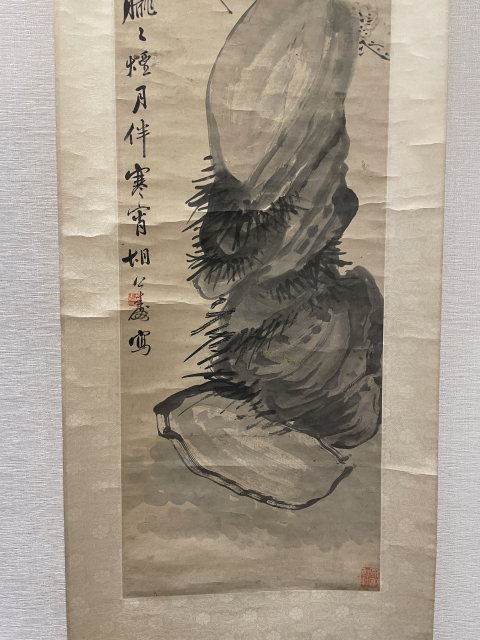 朧〻煙月伴寒宵胡公壽寫